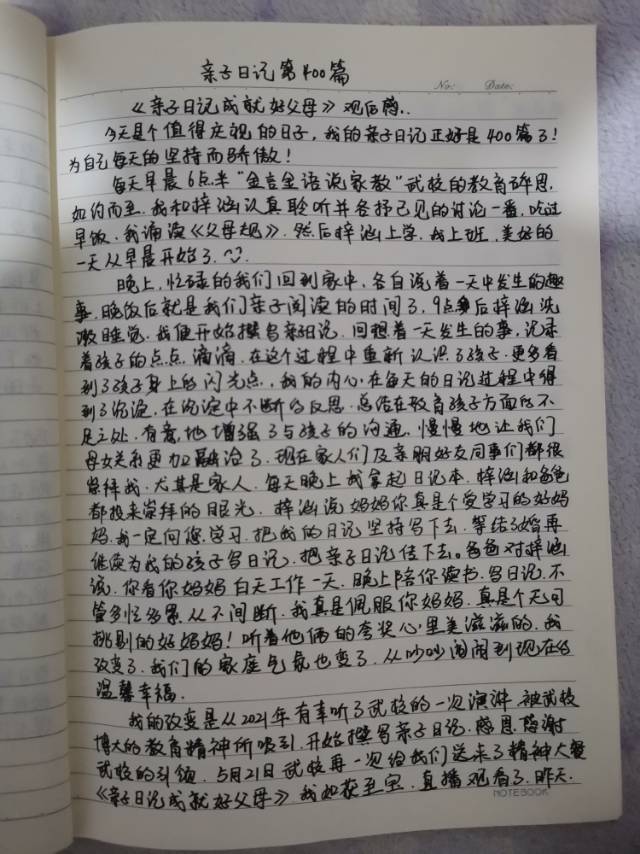 亲子日记第400篇
No: Date:
《亲子日记成就好父母》观后感..
今天是个值得庆祝的日子，我的亲子日记正好是400篇了！
为自己每天的坚持而骄傲！
每天早晨6点半“金言金语说家教”武校的教育辟思，
如约而至.我和梓涵认真聆听并各抒己见的讨论一番，吃过
早饭.我诵读《父母规》.然后梓涵上学，我上班，美好的
一天从早晨开始了.
晚上，忙碌的我们回到家中，各自说着一天中发生的趣
事，晚饭后就是我们亲子阅读的时间了，9点多后梓涵洗
漱睡觉.我便开始撰写亲子日记.回想着一天发生的事，记录
着孩子的点点滴滴.在这个过程中重新认识了孩子.更多看
到了孩子身上的闪光点.，我的内心.在每天的日记过程中得
到了沉淀，在沉淀中不断的反思.总结在教育孩子方面的不
足之处.有意地增强了与孩子的沟通，慢慢地让我们
母女关系更加融洽了.现在家人们及亲朋好友同事们都很
崇拜我.尤其是家人.每天晚上我拿起日记本.梓涵和爸爸
都投来崇拜的眼光.梓涵说妈妈你真是个爱学习的好妈
妈.我一定向您学习.把我的日记坚持写下去.等结了婚再
继续为我的孩子写日记.把亲子日记传下去。爸爸对梓涵
说.你看你妈妈白天工作一天.晚上陪你读书.写日记.不
管多忙多累从不间断.我真是佩服你妈妈.真是个无可
挑剔的好妈妈！听着他俩的夸奖心里美滋滋的.我
改变了.我们的家庭气氛也变了.从吵吵闹闹到现在的
温馨幸福.
我的改变是从2021年有幸听了武校的一次演讲.被武校
博大的教育精神所吸引.开始撰写亲子日记.感恩.感谢
武校的引领.5月21日武校再一次给我们送来了精神大餐
《亲子日记成就好父母》我如获至宝.直播观看了.昨天.
NOTEBOOK